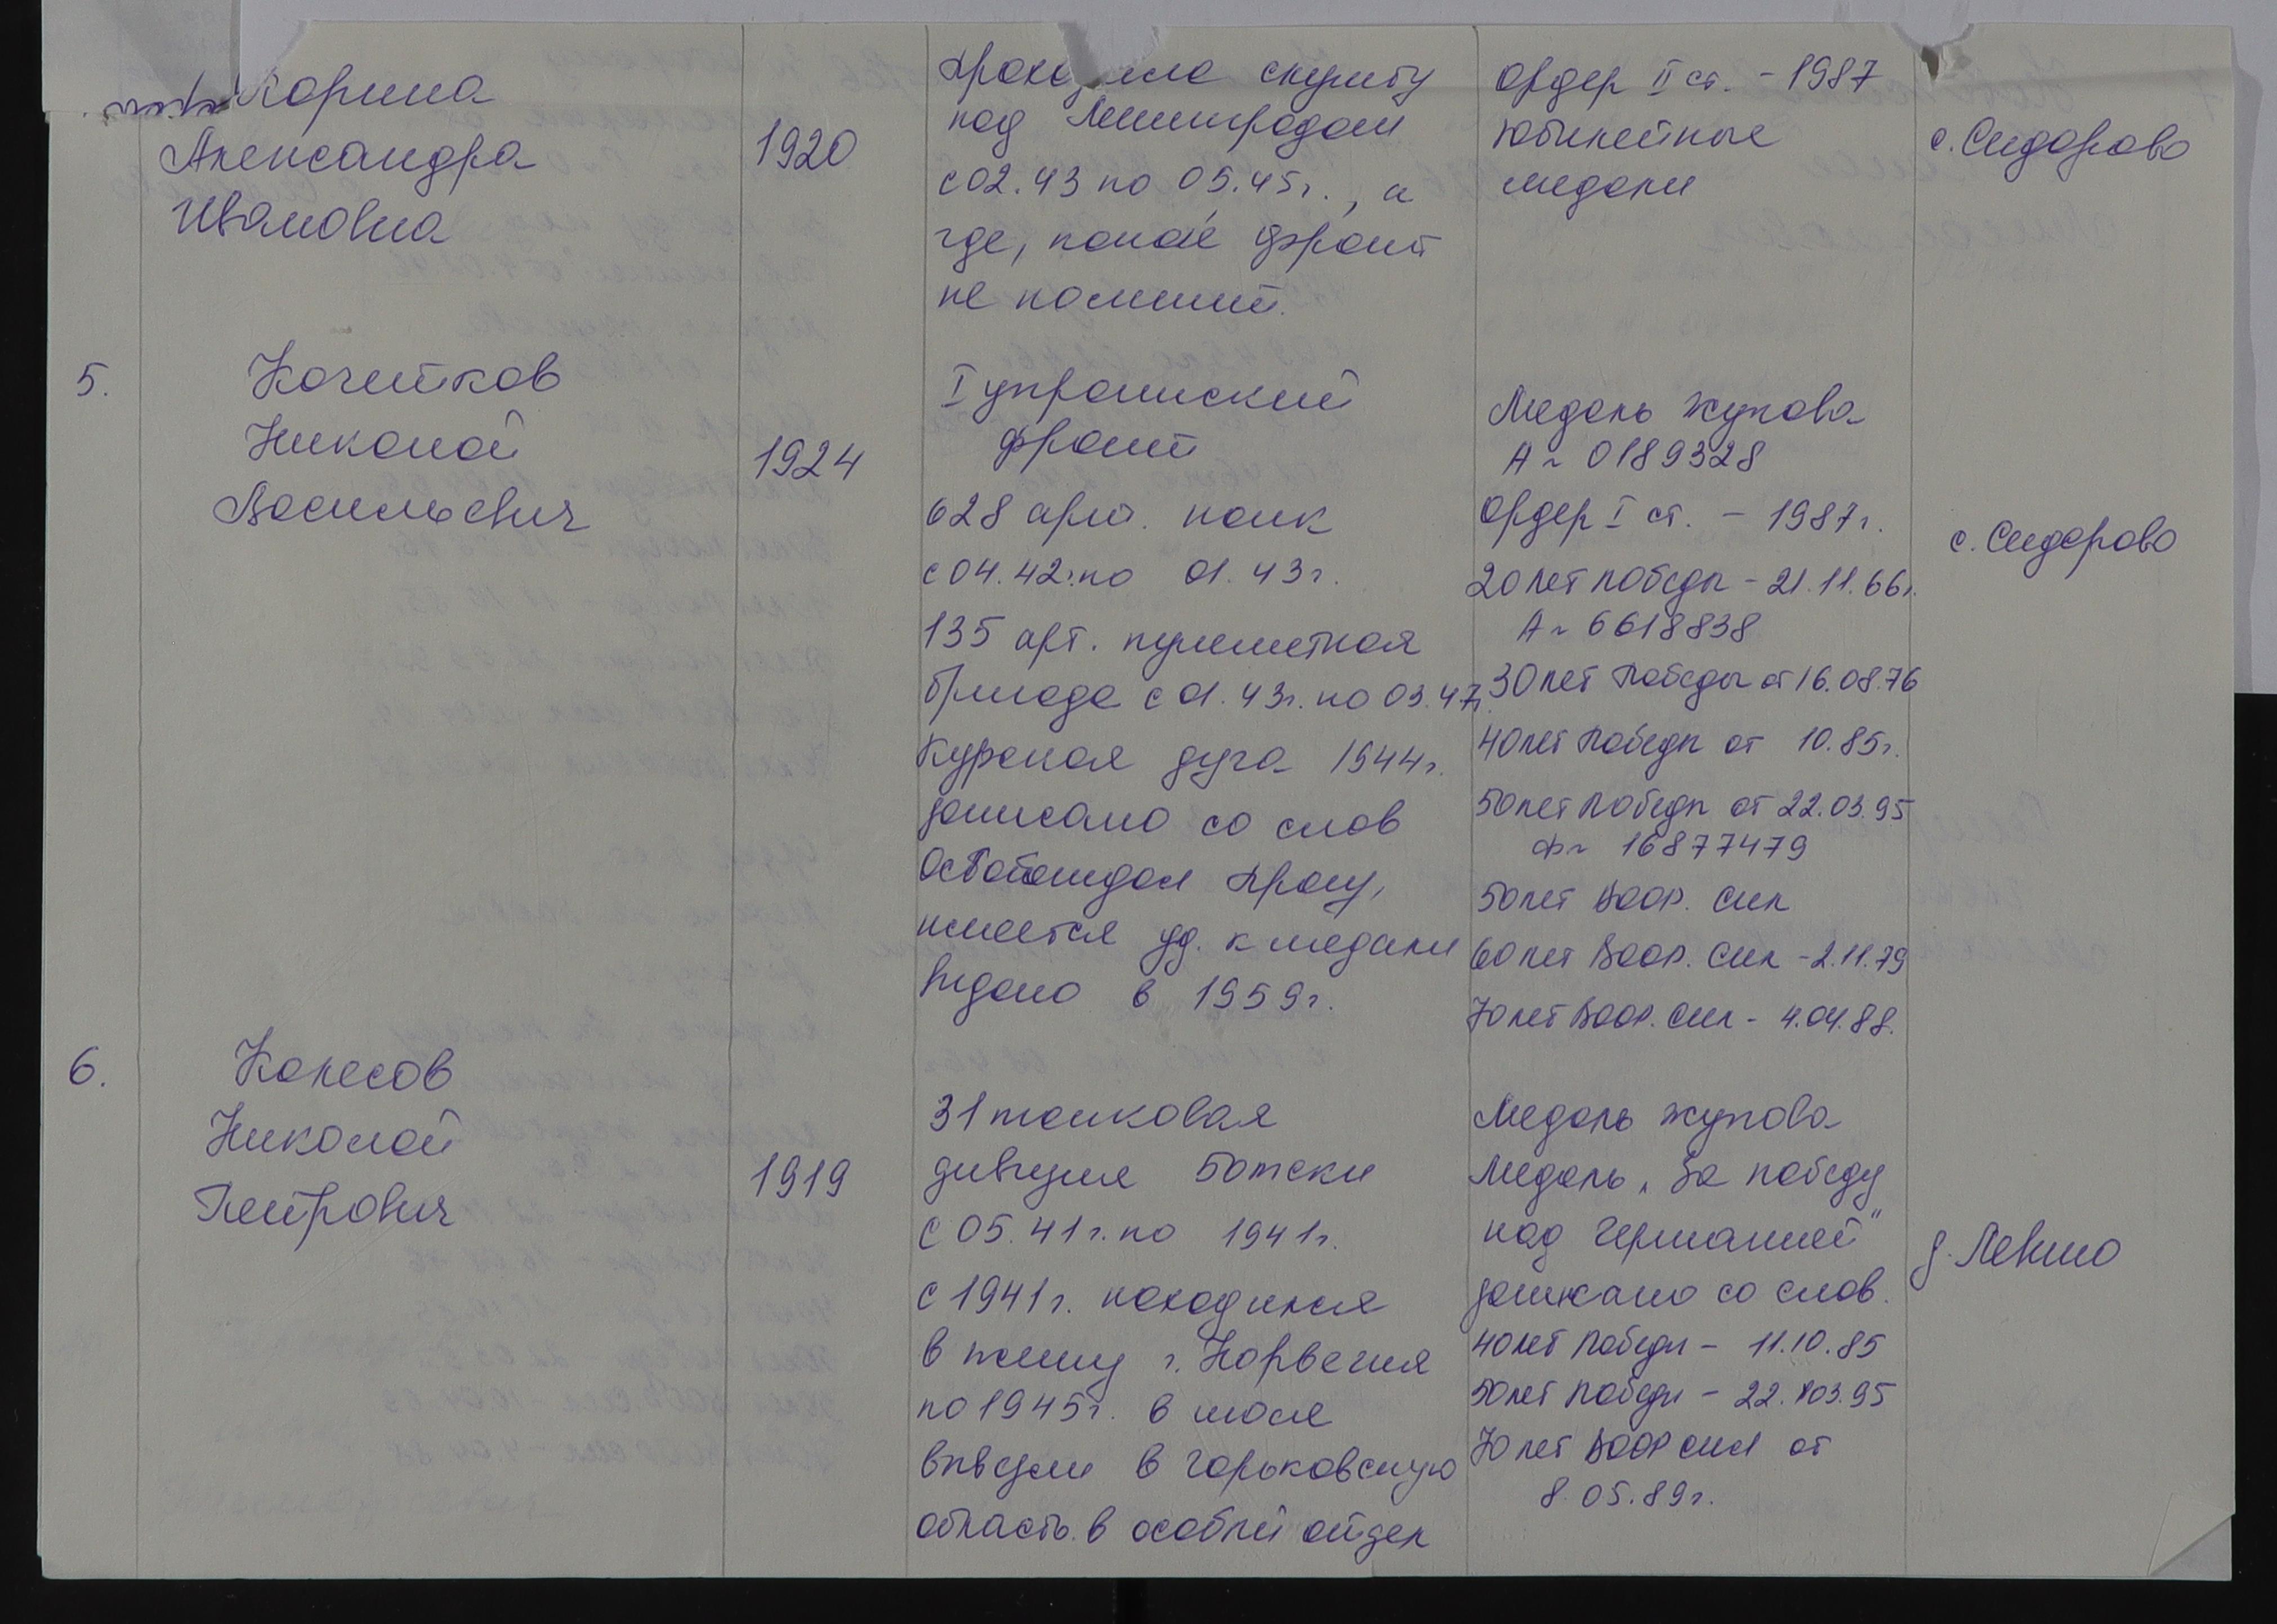 Корина
Александра
Ивановна
1920
Проходила службу
под Ленинградом
с 02.43 по 05.45г., а
где, какой фронт
не помнит.
Ордер II ст. - 1987
Юбилейные
медали
с. Сидорово
5.
Кочетков
Николай
Васильевич
1924
I украинский
фронт
628 арт. полк
с 04.42г. по 01.43г.
135 арт. пулеметная
бригада с 01.43г. по 03.47г.
Курская дуга 1944г.
записано со слов
Освобождал Прагу,
имеется уд. к медали
выдано в 1959г.
Медаль Жукова
А № 0189328
Ордер I ст. - 1987г.
20 лет победы - 21.11.66г.
А № 6618838
30 лет Победы от 16.08.76
40 лет Победы от 10.85г.
50 лет Победы от 22.03.95
Ф № 16877479
50 лет Воор. Сил
60 лет Воор. Сил - 2.11.79
70 лет Воор. Сил - 4.04.88.
с. Сидорово
6.
Колесов
Николай
Петрович
1919
31 танковая
дивизия 50 танки
с 05.41г. по 1941г.
с 1941г. находился
в плену г. Норвегия
по 1945г. в июле
вывезли в Горьковскую
область в особый отдел
Медаль Жукова
Медаль „За победу
над Германией"
записано со слов.
40 лет Победы - 11.10.85
50 лет Победы - 22.03.95
70 лет Воор Сил от
8.05.89г.
д. Левино